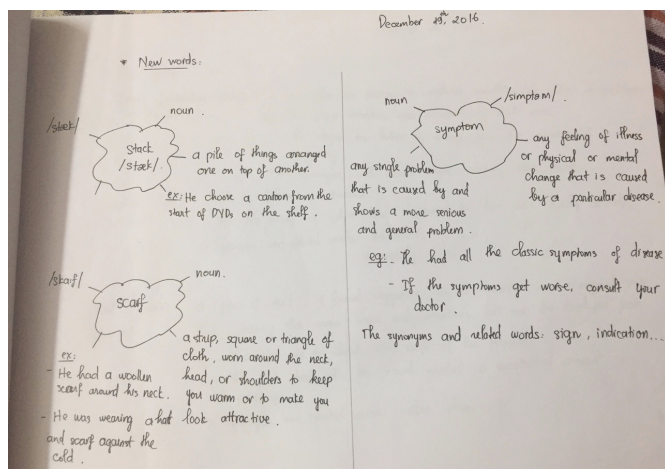 December 19th, 2016.
* New words:
/stæk/
noun.
Stack
/stæk/.
a pile of things arranged
one on top of another.
ex: He choose a cartoon from the
start of DVDs on the shelf.
/skaːf/
noun.
scarf
a strip, square or triangle of
cloth, worn around the neck,
head, or shoulders to keep
you warm or to make you
look attractive.
ex:
- He had a woollen
scarf around his neck.
- He was wearing a hat
and scarf against the
cold.
noun
/simptəm/.
symptom
any feeling of illness
or physical or mental
change that is caused
by a particular disease.
any single problem
that is caused by and
shows a more serious
and general problem.
eg: - He had all the classic symptoms of disease
- If the symptoms get worse, consult your
doctor.
The synonyms and related words: sign, indication...